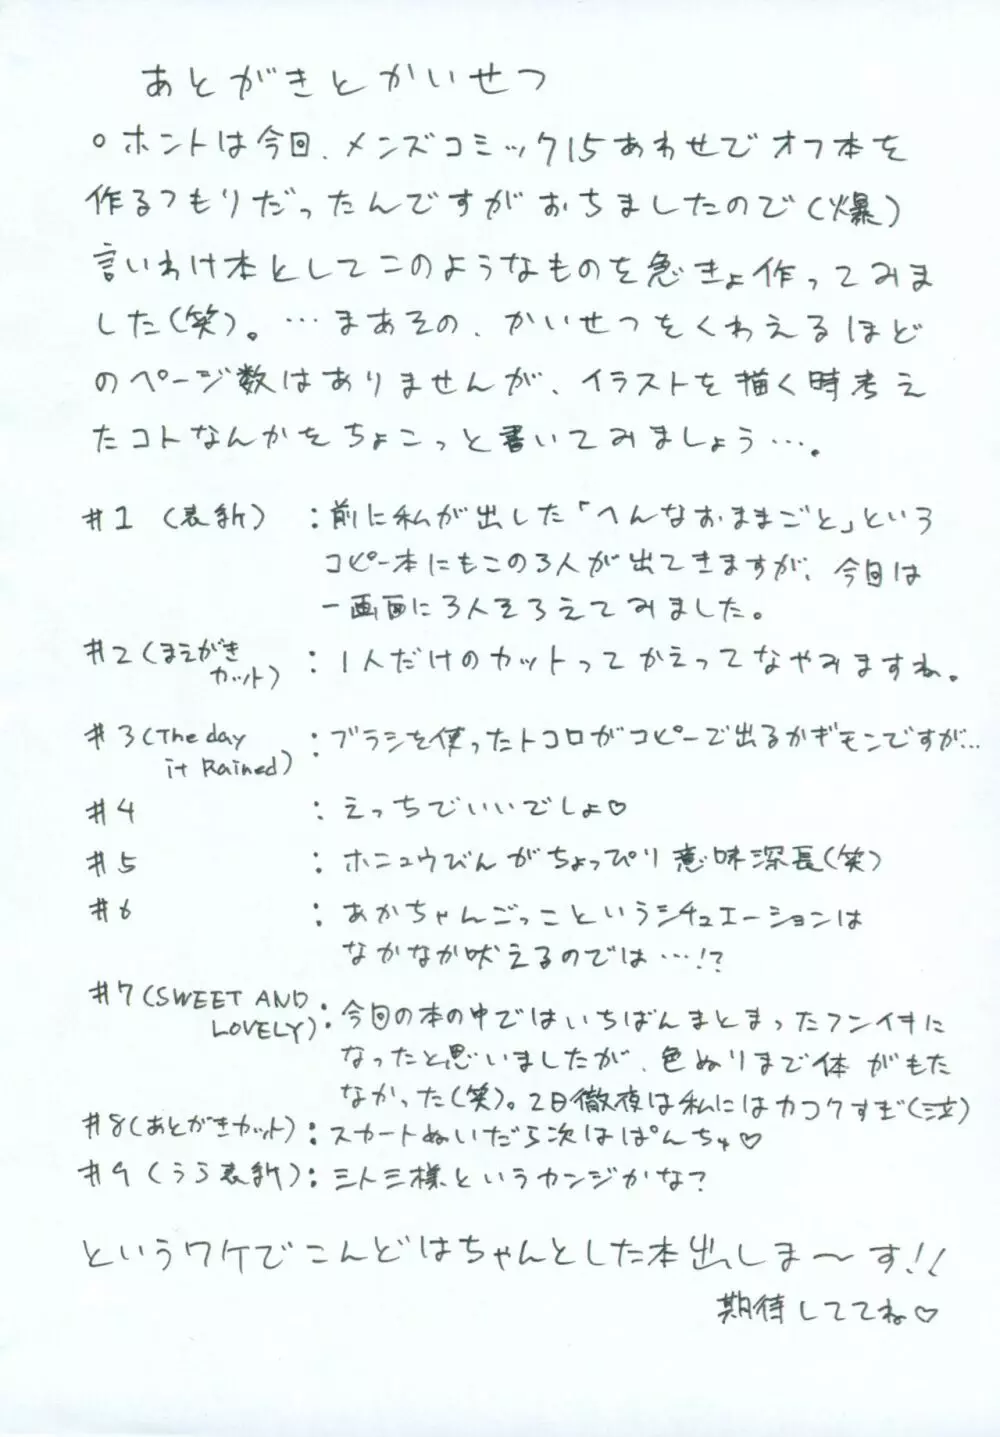 あとがきとかいせつ
○ホントは今回、メンズコミック15あわせでオフ本を
作るつもりだったんですがおちましたので(爆)
言いわけ本としてこのようなものを急きょ作ってみま
した(笑)。…まあその、かいせつをくわえるほど
のページ数はありませんが、イラストを描く時考え
たコトなんかをちょこっと書いてみましょう…。
#1 (表紙) : 前に私が出した「へんなおままごと」という
コピー本にもこの3人が出てきますが、今回は
一画面に3人そろえてみました。
#2(まえがき
カット) : 1人だけのカットってかえってなやみますね。
#3(The day
it Rained) : ブラシを使ったトコロがコピーで出るかギモンですが…
#4 : えっちでいいでしょ♡
#5 : ホニュウびんがちょっぴり意味深長(笑)
#6 : あかちゃんごっこというシチュエーションは
なかなか吠えるのでは…!?
#7(SWEET AND
LOVELY) : 今回の本の中ではいちばんまとまったフンイキに
なったと思いましたが、色ぬりまで体がもた
なかった(笑)。2日徹夜は私にはカコクすぎ(泣)
#8(あとがきカット) : スカートぬいだら次はぱんちゅ♡
#9(うら表紙) : ミトミ様というカンジかな?
というワケでこんどはちゃんとした本出しま〜す!!
期待しててね♡